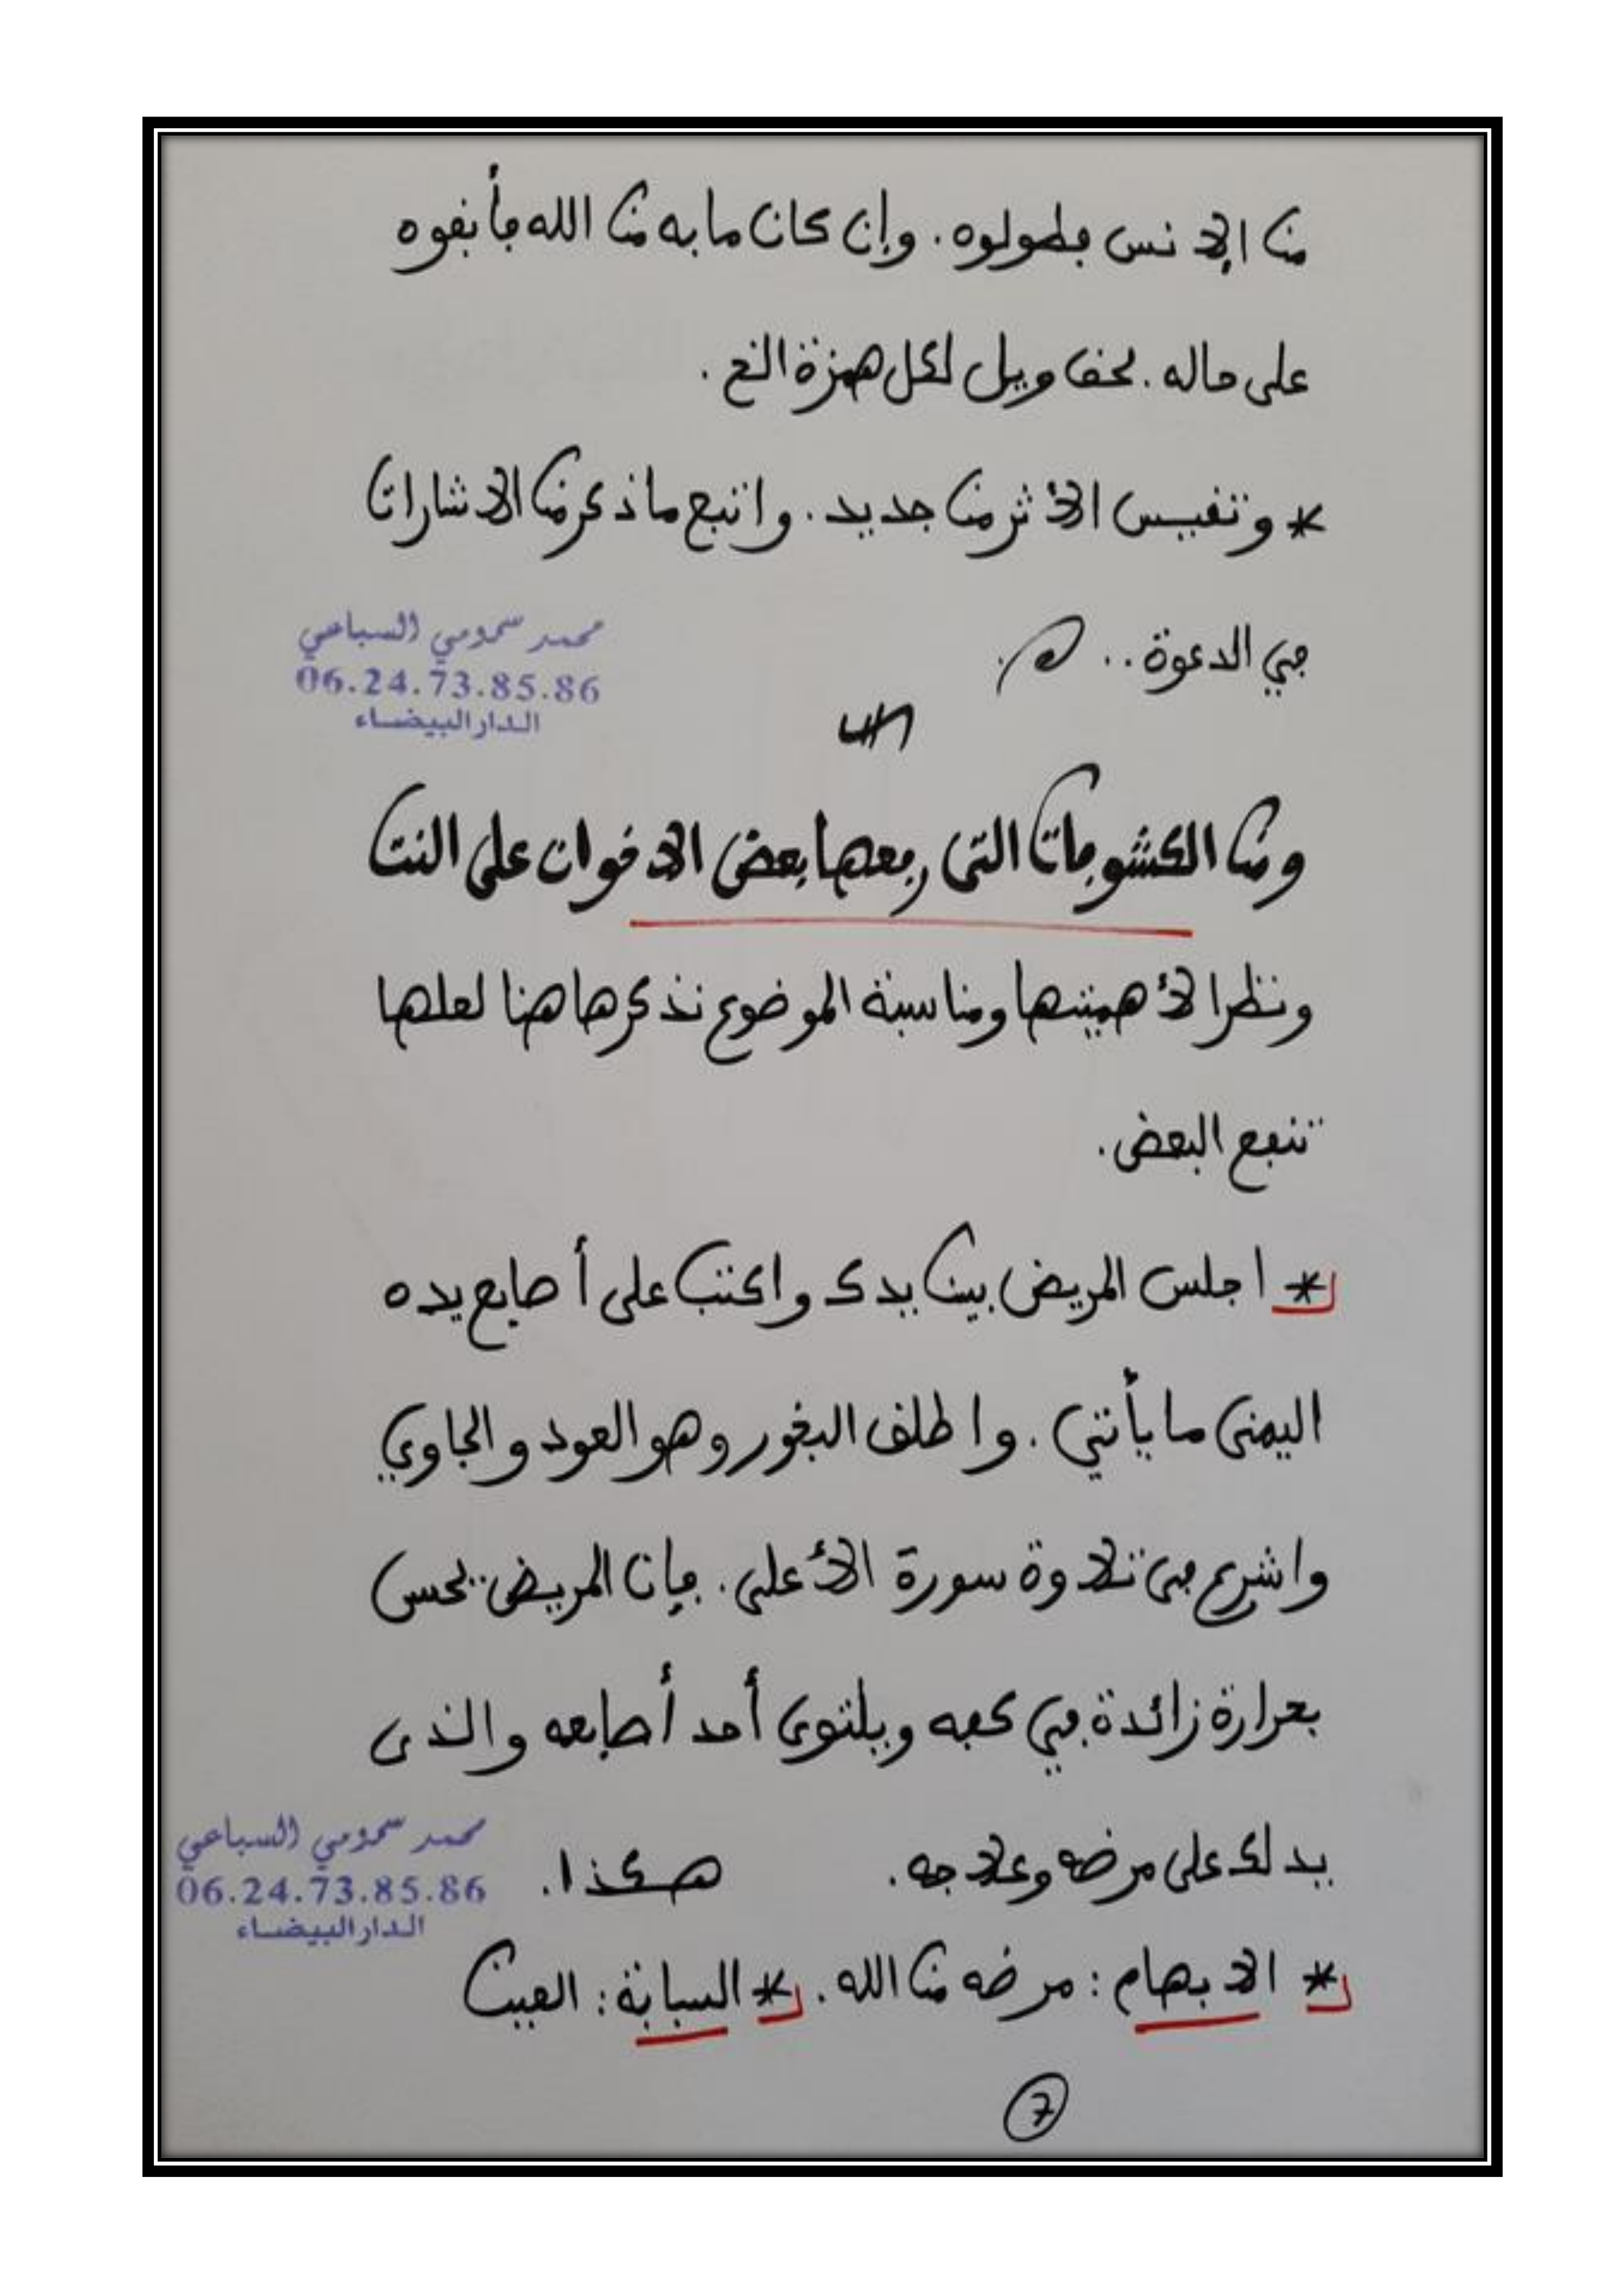 من الإنس فطولوه. وإن كان ما به من الله فأبقوه
على حاله. بحق ويل لكل همزة الخ.
* وتقيس الأثر من جديد. واتبع ما ذكر من الاشارات
في الدعوة..
محمد سحومي السباعي
06.24.73.85.86
الدار البيضاء
ومن الكشوفات التي رفعها بعض الاخوان على النت
ونظرا لأهميتها ومناسبة الموضوع نذكرها هنا لعلها
تنفع البعض.
* اجلس المريض بين يدك واكتب على أصابع يده
اليمنى ما يأتي. واطلق البخور وهو العود والجاوي
واشرع في تلاوة سورة الأعلى. فإن المريض يحس
بحرارة زائدة في كفه ويلتوي أحد أصابعه والذي
يدلك على مرضه وعلاجه. هكذا.
محمد سحومي السباعي
06.24.73.85.86
الدار البيضاء
* الابهام: مرضه من الله. * السبابة: العين
7